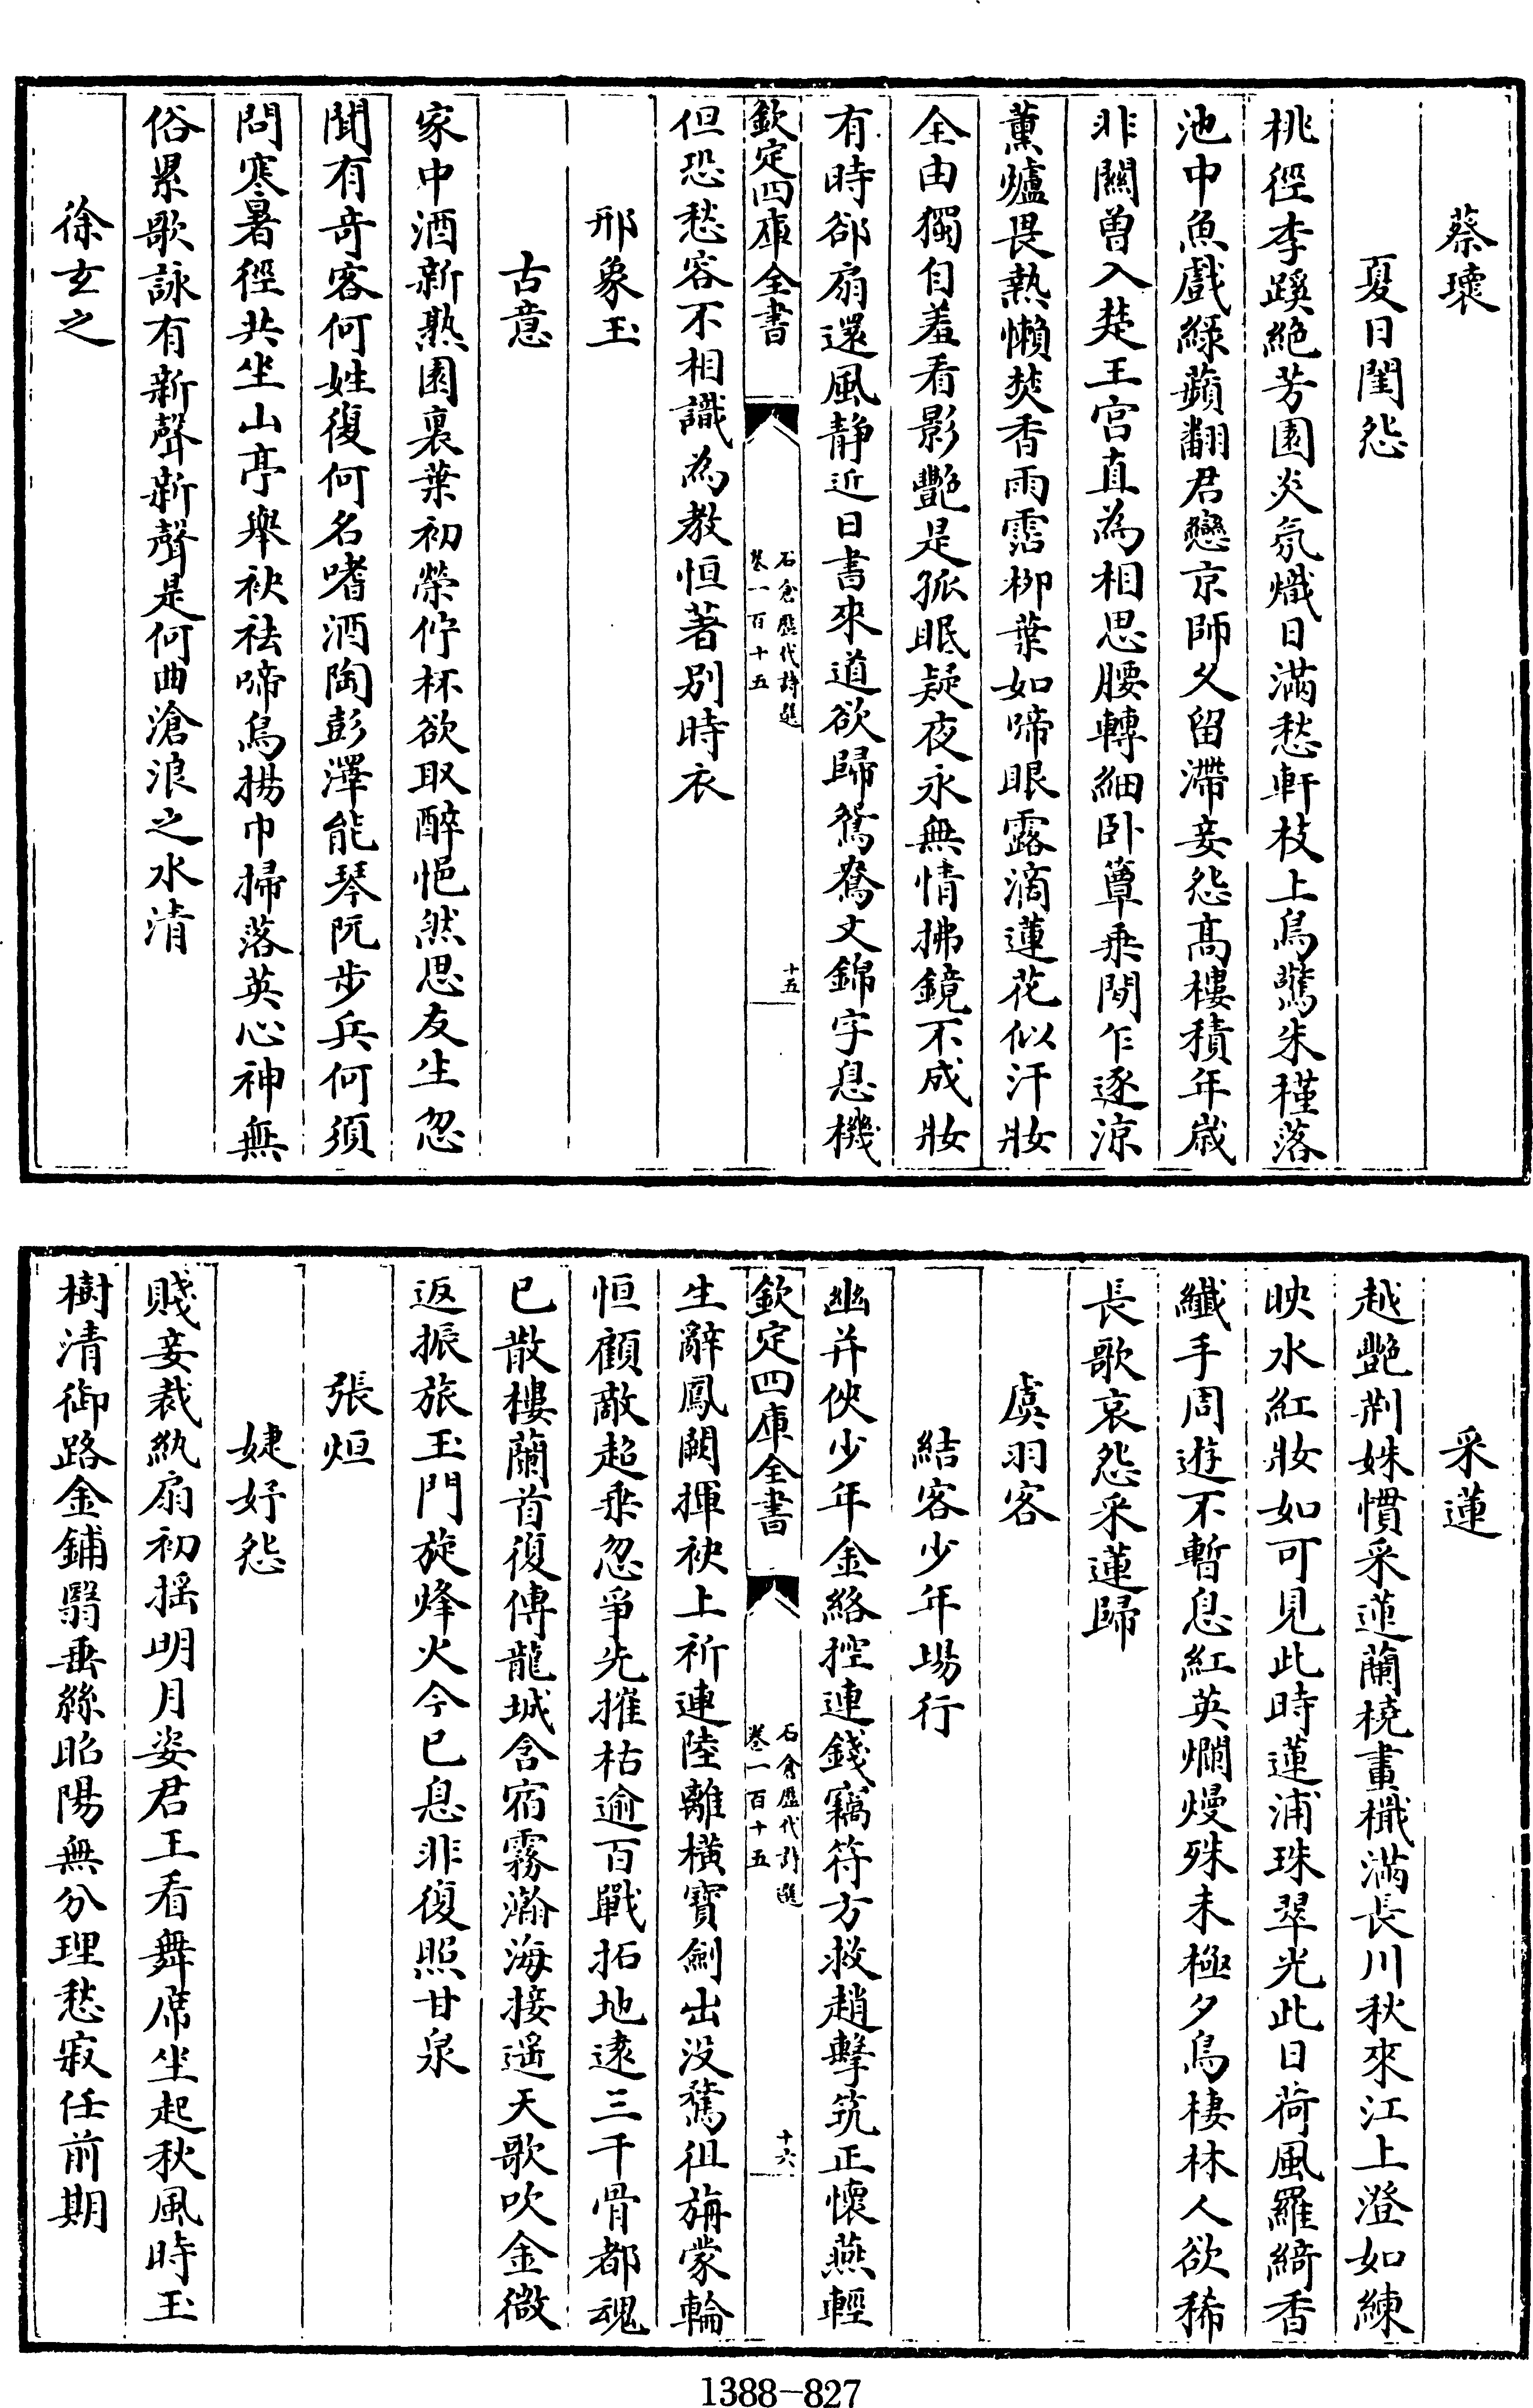 蔡瓌
夏日閨怨
桃徑李蹊絶芳園炎氛熾日滿愁軒枝上鳥驚朱槿落
池中魚戲緑蘋翻君戀京師久留滯妾怨髙樓積年嵗
非闗曽入楚王宫直為相思腰轉細卧簟乗閒乍逐凉
薰爐畏熱懶焚香雨霑柳葉如啼眼露滴蓮花似汗妝
全由獨自羞看影艷是孤眠疑夜永無情拂鏡不成妝
有時郤扇還風静近日書來道欲歸鴛鴦文錦字息機
欽定四庫全書
石倉歷代詩選
卷一百十五
十五
但恐愁容不相識為教恒著别時衣
邢象玉
古意
家中酒新熟園裏葉初榮佇杯欲取醉悒然思友生忽
聞有竒客何姓復何名嗜酒陶彭澤能琴阮步兵何須
問寒暑徑共坐山亭舉袂祛啼鳥揚巾掃落英心神無
俗累歌詠有新聲新聲是何曲滄浪之水清
徐玄之
采蓮
越艷荆姝慣采蓮蘭橈畫檝滿長川秋來江上澄如練
映水紅妝如可見此時蓮浦珠翠光此日荷風羅綺香
纖手周遊不暫息紅英爛熳殊未極夕鳥棲林人欲稀
長歌哀怨采蓮歸
虞羽客
結客少年塲行
幽并俠少年金絡控連錢竊符方救趙擊筑正懷燕輕
欽定四庫全書
石倉歷代詩選
卷一百十五
十六
生辭鳳闕揮袂上祈連陸離横寶劍出没騖徂旃蒙輪
恒顧敵超乗忽爭先摧枯逾百戰拓地逺三千骨都魂
已散樓蘭首復傳龍城含宿霧瀚海接遥天歌吹金微
返振旅玉門旋烽火今已息非復照甘泉
張烜
婕妤怨
賤妾裁紈扇初揺明月姿君王看舞席坐起秋風時玉
樹清御路金鋪翳垂絲昭陽無分理愁寂任前期
1388-827